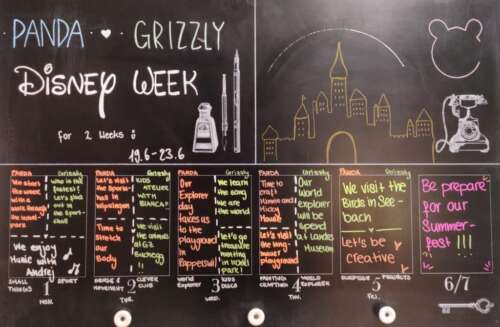 PANDA ♥ GRIZZLY
DISNEY WEEK
for 2 Weeks :)
19.6-23.6
PANDA
Grizzly
We start
the week
with a
walk through
the
Who is the
fastest?
Let's find
out in
the Sport-
We enjoy
Music with
Andrej
SMALL
THINGS
1
SPORT
MON.
PANDA
Grizzly
Let's visit
the Sports-
hall in
Time to
Stretch
our
Body
KIDS
ATELIER
WITH
BIANCA!
We visit
the
animals
at GZ
Buchegg
!!!
SENSE &
MOVEMENT
2
CLEVER
CLUB
TUE.
PANDA
Grizzly
Our
Explorer
day
takes us
to the
playground
in
Rapperswil!
We learn
the song
we are
the world
Let's go
treasure
hunting
in
park!
World
Explorer
3
KIDS
DISCO
WED.
PANDA
Grizzly
Time to
craft
and
Mickey
Let's visit
the
playground
Our
World
explorer
will be
spend
at Landes
Museum
PAINTING
CRAFTING
4
WORLD
EXPLORER
THU.
PANDA
Grizzly
We visit the
Birds in See-
bach
Let's be
creative
SURPRISE
5
PROJECTS
FRI.
Be prepare
for our
Summer-
fest !!!
6/7